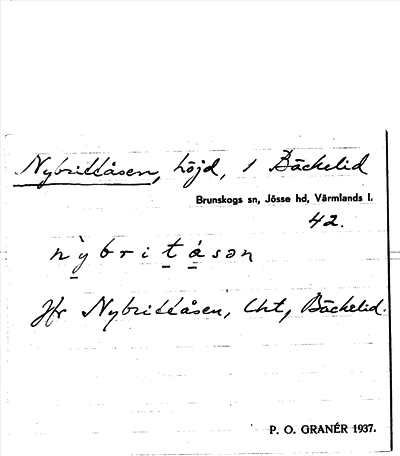 Nybrittåsen, höjd, 1 Bäckelid
Brunskogs sn, Jösse hd, Värmlands l.
42.
nỳbritåsən
Jfr Nybrittåsen, lht, Bäckelid.
P. O. GRANÉR 1937.